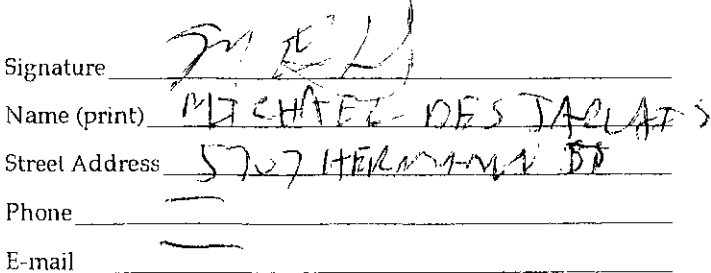 Signature
Name (print) MICHAEL DES JARLAIS
Street Address 5707 HERMANN
Phone —
E-mail —